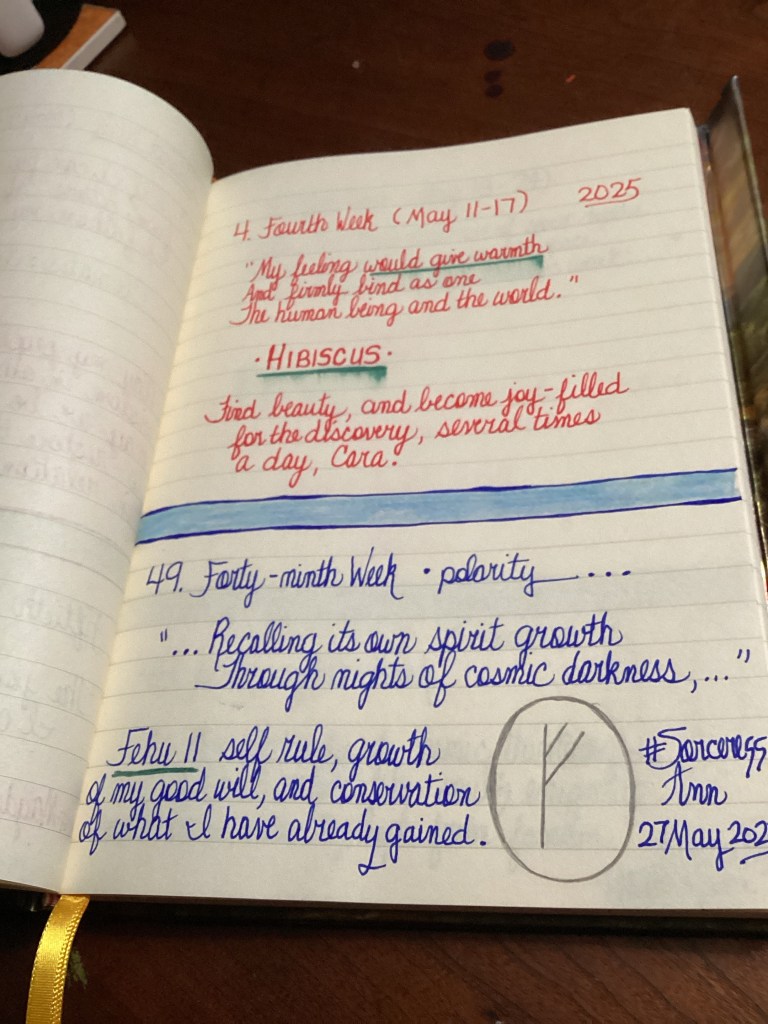 4. Fourth Week (May 11-17) 2025
"My feeling would give warmth
And firmly bind as one
The human being and the world."
· HIBISCUS ·
Find beauty, and become joy-filled
for the discovery, several times
a day, Cara!
49. Forty-ninth Week · polarity ....
"... Recalling its own spirit growth
Through nights of cosmic darkness,..."
Fehu 11 self rule, growth
of my good will, and conservation
of what I have already gained.
#Sorceress
Ann
27 May 202